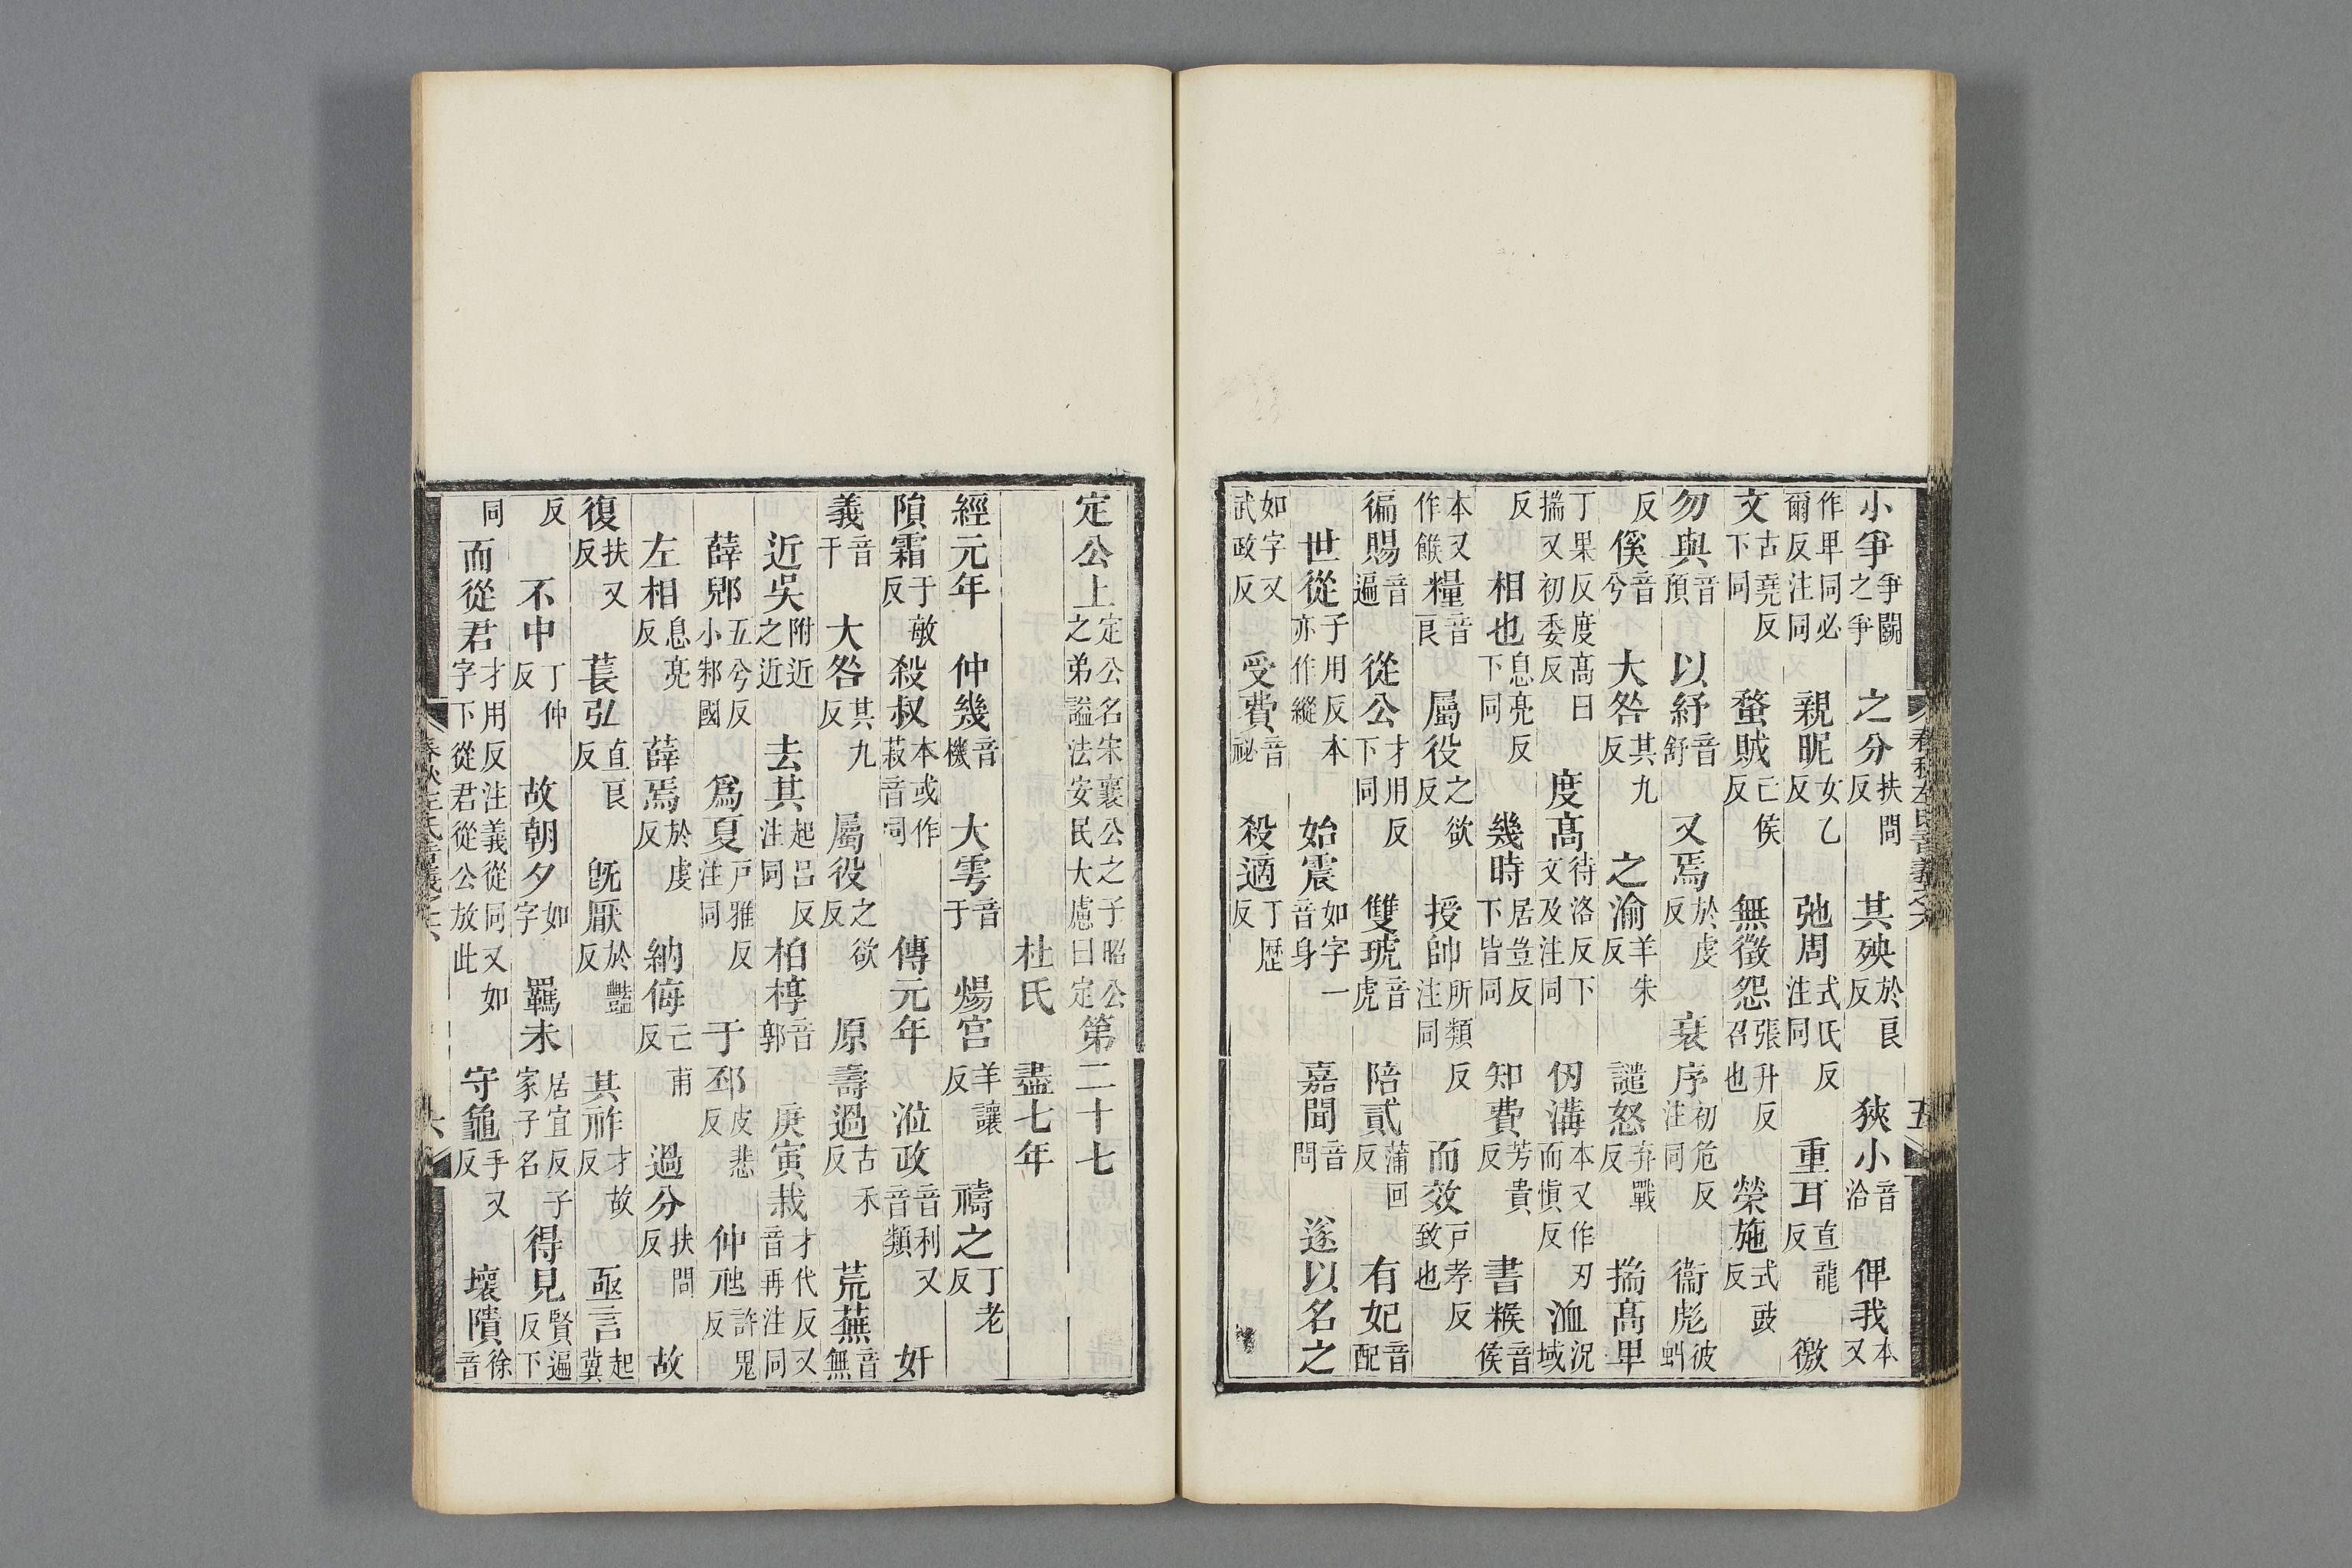 小爭爭鬭之爭 之分扶問反 其殃於良反 狹小音洽 俾我本又
作卑同必爾反注同 親昵女乙反 弛周式氏反注同 重耳直龍反 徼
文古堯反下同 蝥賊亡侯反 無徵怨張升反召也 縈施式豉反
勿與音預 以紓音舒 又焉於虔反 衰序初危反注同 衞彪彼虯
反 傒音兮 大咎其九反 之渝羊朱反 譴怒弃戰反 揣髙卑
丁果反度髙曰揣又初委反 度髙待洛反下文及注同 仞溝本又作刃而愼反 洫況域
反 相也息亮反下同 幾時居豈反下皆同 知費芳貴反 書糇音侯
本又作餱 糧音良 屬役之欲反 授帥所類反注同 而效戶孝反致也
徧賜音遍 從公才用反下同 雙琥音虎 陪貳蒲回反 有妃音配
世從子用反本亦作縱 始震如字一音身 嘉聞音問 遂以名之
如字又武政反 受費音祕 殺適丁歴反
春秋左氏音義之六 五
定公上定公名宋襄公之子昭公之弟謚法安民大慮曰定第二十七
杜氏 盡七年
經元年 仲幾音機 大雩音于 煬宮羊讓反 禱之丁老反
隕霜于敏反 殺叔本或作菽音同 傳元年 涖政音利又音類 奸
義音干 大咎其九反 屬役之欲反 原壽過古禾反 荒蕪音無
近吳附近之近 去其起呂反注同 柏椁音郭 庚寅栽才代反又音再注同
薛郳五兮反小邾國 爲夏戶雅反注同 于邳皮悲反 仲虺許鬼反
左相息亮反 薛焉於虔反 納侮亡甫反 過分扶問反 故
復扶又反 萇弘直良反 旣厭於豔反 其祚才故反 亟言起冀
反 不中丁仲反 故朝夕如字 羈未居宜反子家子名 得見賢遍反下
同 而從君才用反注義從同又如字下從君從公放此 守龜手又反 壞隤徐音
春秋左氏音義之六 六